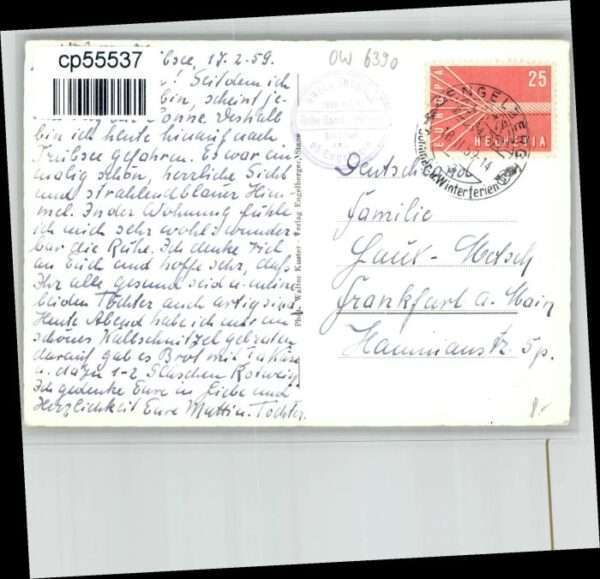 cp55537
bsee, 17. 2. 59.
! Seitdem ich
bin, scheint je-
Sonne. Deshalb
bin ich heute hinauf nach
Trübsee gefahren. Es war ein-
malig schön, herrliche Sicht
und strahlendblauer Him-
mel. In der Wohnung fühle
ich mich sehr wohl: wunder-
bar die Ruhe. Ich denke viel
an Euch und hoffe sehr, daß
Ihr alle gesund seid u. meine
beiden Töchter auch artig sind.
Heute Abend habe ich mir ein
schönes Kalbschnitzel gebraten
darauf gab es Brot mit Käse
u. dazu 1-2 Gläschen Rotwein.
Ich gedenke Eure in Liebe und
Herzlichkeit Eure Mutti u. Tochter.
Phot. Walter Kuster - Verlag Engelberger, Stans
OW 6390
EUROPA
25
HELVETIA
ENGELBERG
Sommer- & Winterferien
Deutschland
Familie
Frankfurt a. Main
8.-